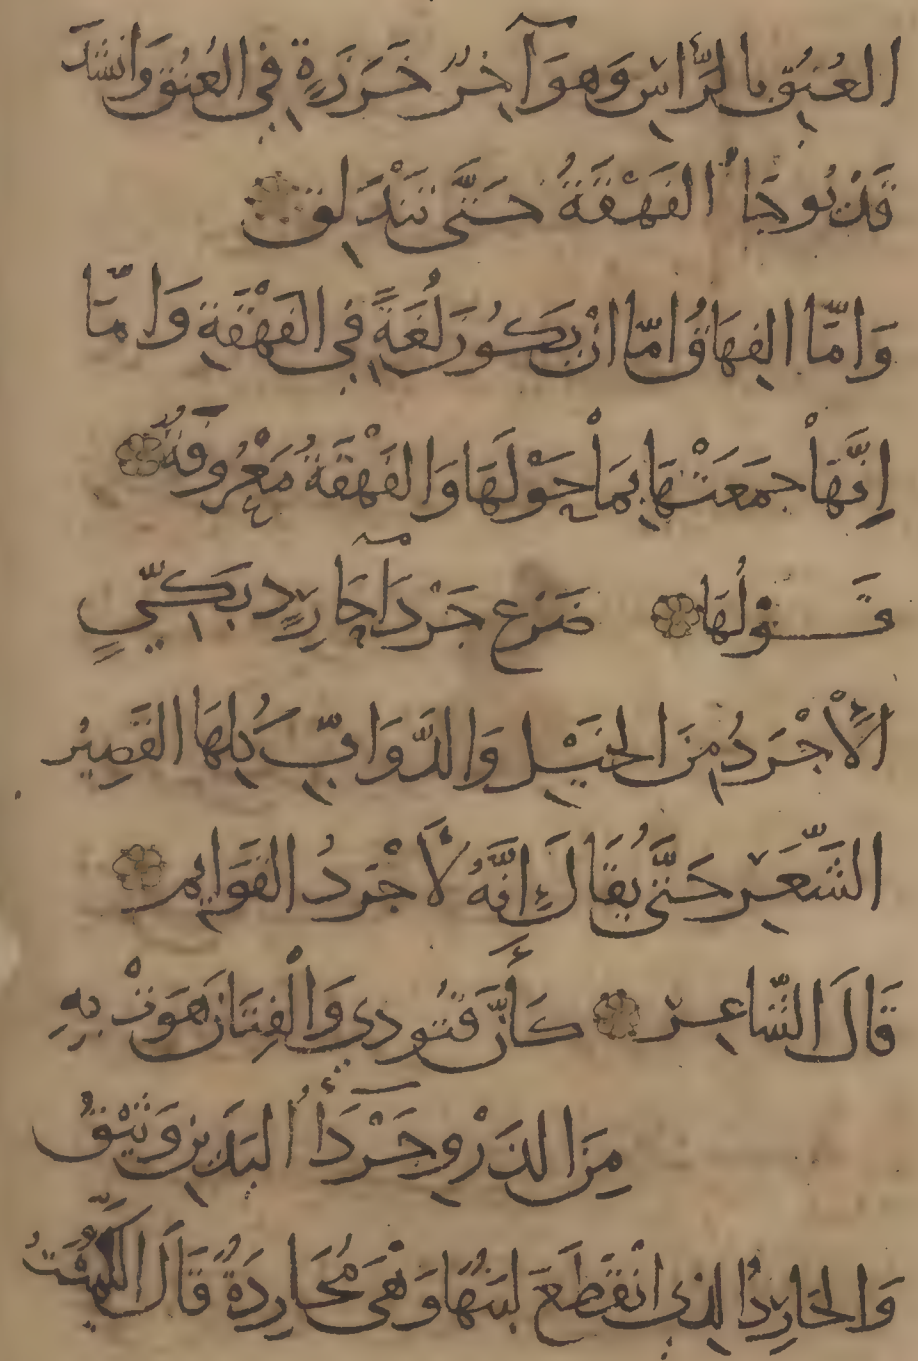 العُنُقِ بالرَّأسِ وَهوَ آخِرُ خَرَزَةٍ في العُنُقِ وَانشَدَ
قَدْ تُوجَأُ الفَهْقَةُ حَتَّى تَنْدَلِق
وَامَّا الفِهَاقُ امّا انْ يَكُونَ لُغَةً فِي الفَهْقَةِ وَامَّا
اِنَّهَا جَمَعَتْهَا بِمَا حَوْلَهَا وَالفَهْقَةُ مَعْرُوفَةٌ
قَوْلُهَا ضَرْع جَرْدَآ حَارِدٍ بَكِيٍّ
الأَجْرَدُ مِنَ الخَيْلِ وَالدَّوَابِّ كُلِّهَا القَصِيرُ
الشَّعَرِ حَتَّى يُقَالَ اِنَّهُ لأَجْرَدُ القَوَايِمِ
قَالَ الشَّاعِر كَأَنَّ قُتُودِي وَالْفِتَان هَوَتْ بِهِ
مِنَ الدَرْوِ جَرْدَآءُ اليَدَيْنِ وَثِيْقُ
وَالحَارِدُ الذِي انْقَطَعَ لَبَنُهَا وَهْيَ مُحَارِدَةٌ قَالَ الكُمَيْتُ